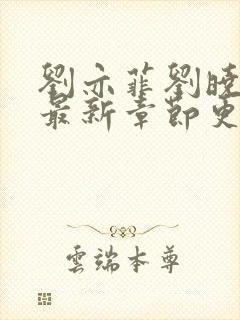 劉亦菲劉曉
最新章節更
雲端本尊